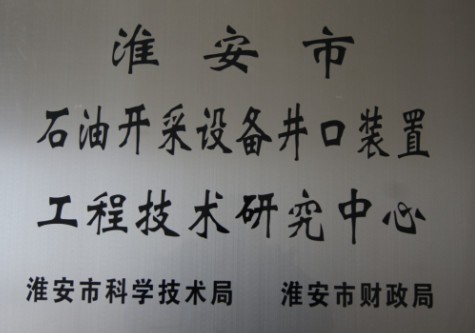 淮安市
石油开采设备井口装置
工程技术研究中心
淮安市科学技术局 淮安市财政局